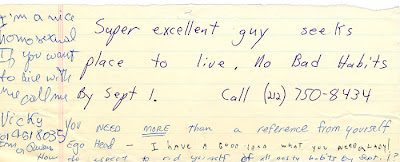 Super excellent guy seeks
place to live. No Bad Habits
By Sept 1. Call (212) 750-8434
I'm a nice
homosexual
If you want
to live with
me call me
Vicky
You NEED MORE than a reference from yourself
Ego Head - I have a good idea what you need, lady!
to rid yourself of all nasty habits by Sept. 1?